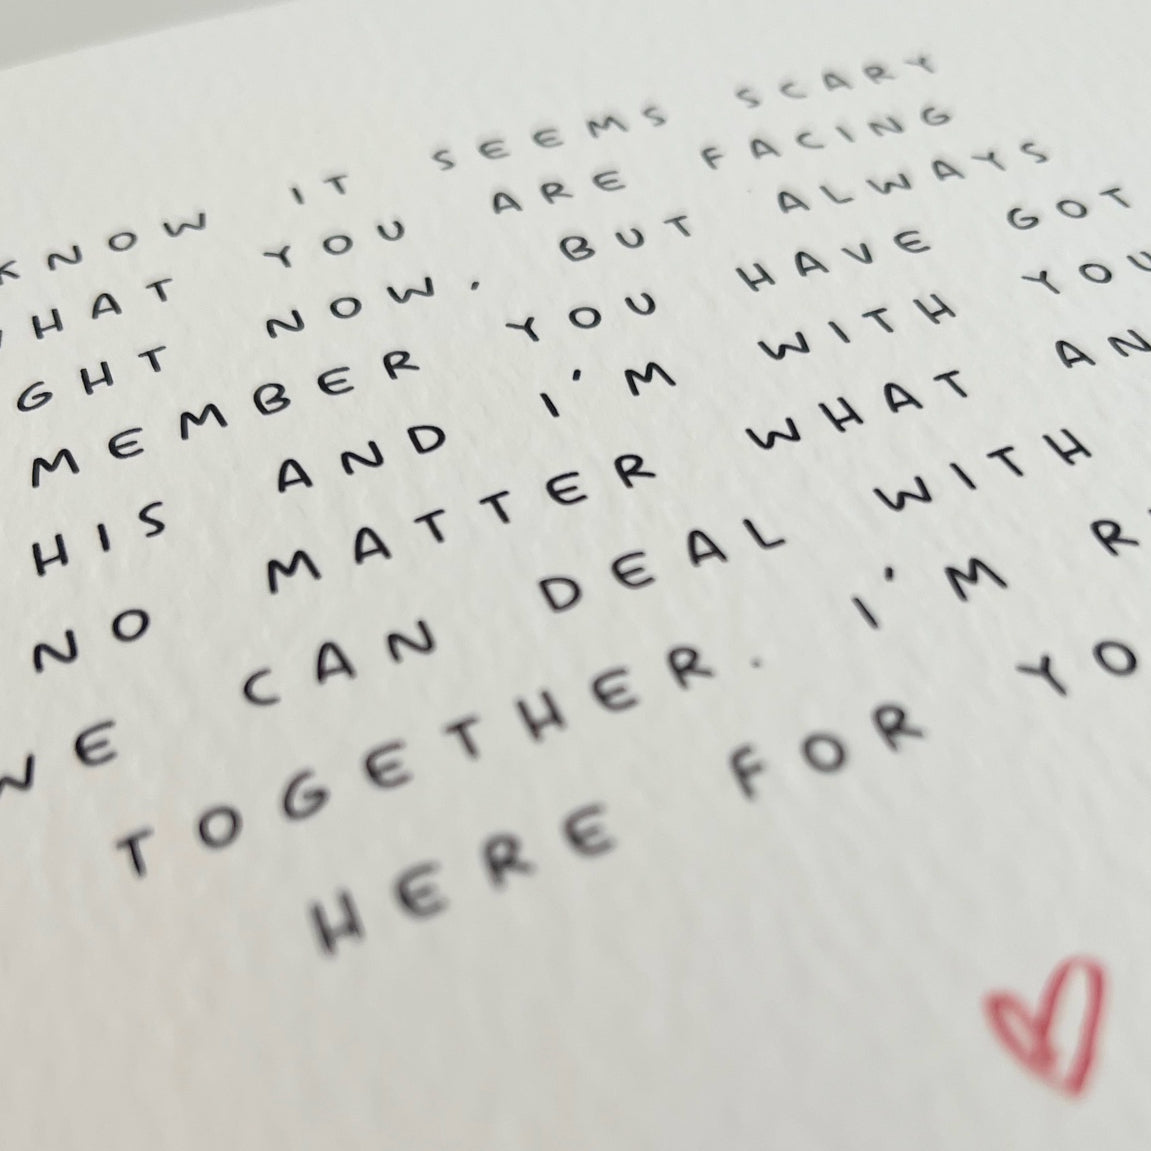 KNOW IT SEEMS SCARY
HAT YOU ARE FACING
GHT NOW. BUT ALWAYS
MEMBER YOU HAVE GOT
HIS AND I'M WITH YOU
NO MATTER WHAT AN
WE CAN DEAL WITH
TOGETHER. I'M R
HERE FOR YO